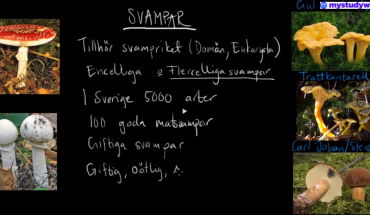 SVAMPAR
Gul
mystudyw
Tillhör svampriket (Domän, Eukaryota)
Encelliga & Flercelliga svampar
I Sverige 5000 arter
100 goda matsvampar
Giftiga svampar
Giftig, oätlig,
Trattkantarell
Carl Johan/Sten